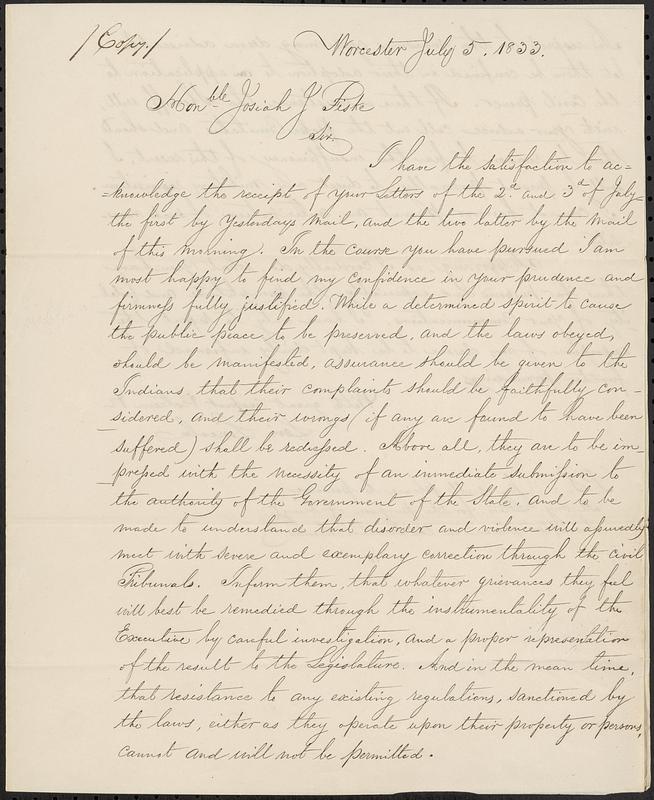 /Copy./
Worcester July 5. 1833.
Honble Josiah J Fiske
Sir
I have the satisfaction to ac=
=knowledge the receipt of your Letters of the 2d and 3d of July=
the first by Yesterdays Mail, and the two latter by the Mail
of this morning. In the course you have pursued I am
most happy to find my confidence in your prudence and
firmness fully justified. While a determined spirit to cause
the public peace to be preserved, and the laws obeyed,
should be manifested, assurance should be given to the
Indians that their complaints should be faithfully con-
sidered, and their wrongs (if any are found to have been
suffered) shall be redressed. Above all, they are to be im-
pressed with the necessity of an immediate submission to
the authority of the Government of the State, and to be
made to understand that disorder and violence will assuredly
meet with severe and exemplary correction through the civil
Tribunals. Inform them, that whatever grievances they feel
will best be remedied through the instrumentality of the
Executive by careful investigation, and a proper representation
of the result to the Legislature. And in the mean time,
that resistance to any existing regulations, sanctioned by
the laws, either as they operate upon their property or persons,
cannot and will not be permitted.